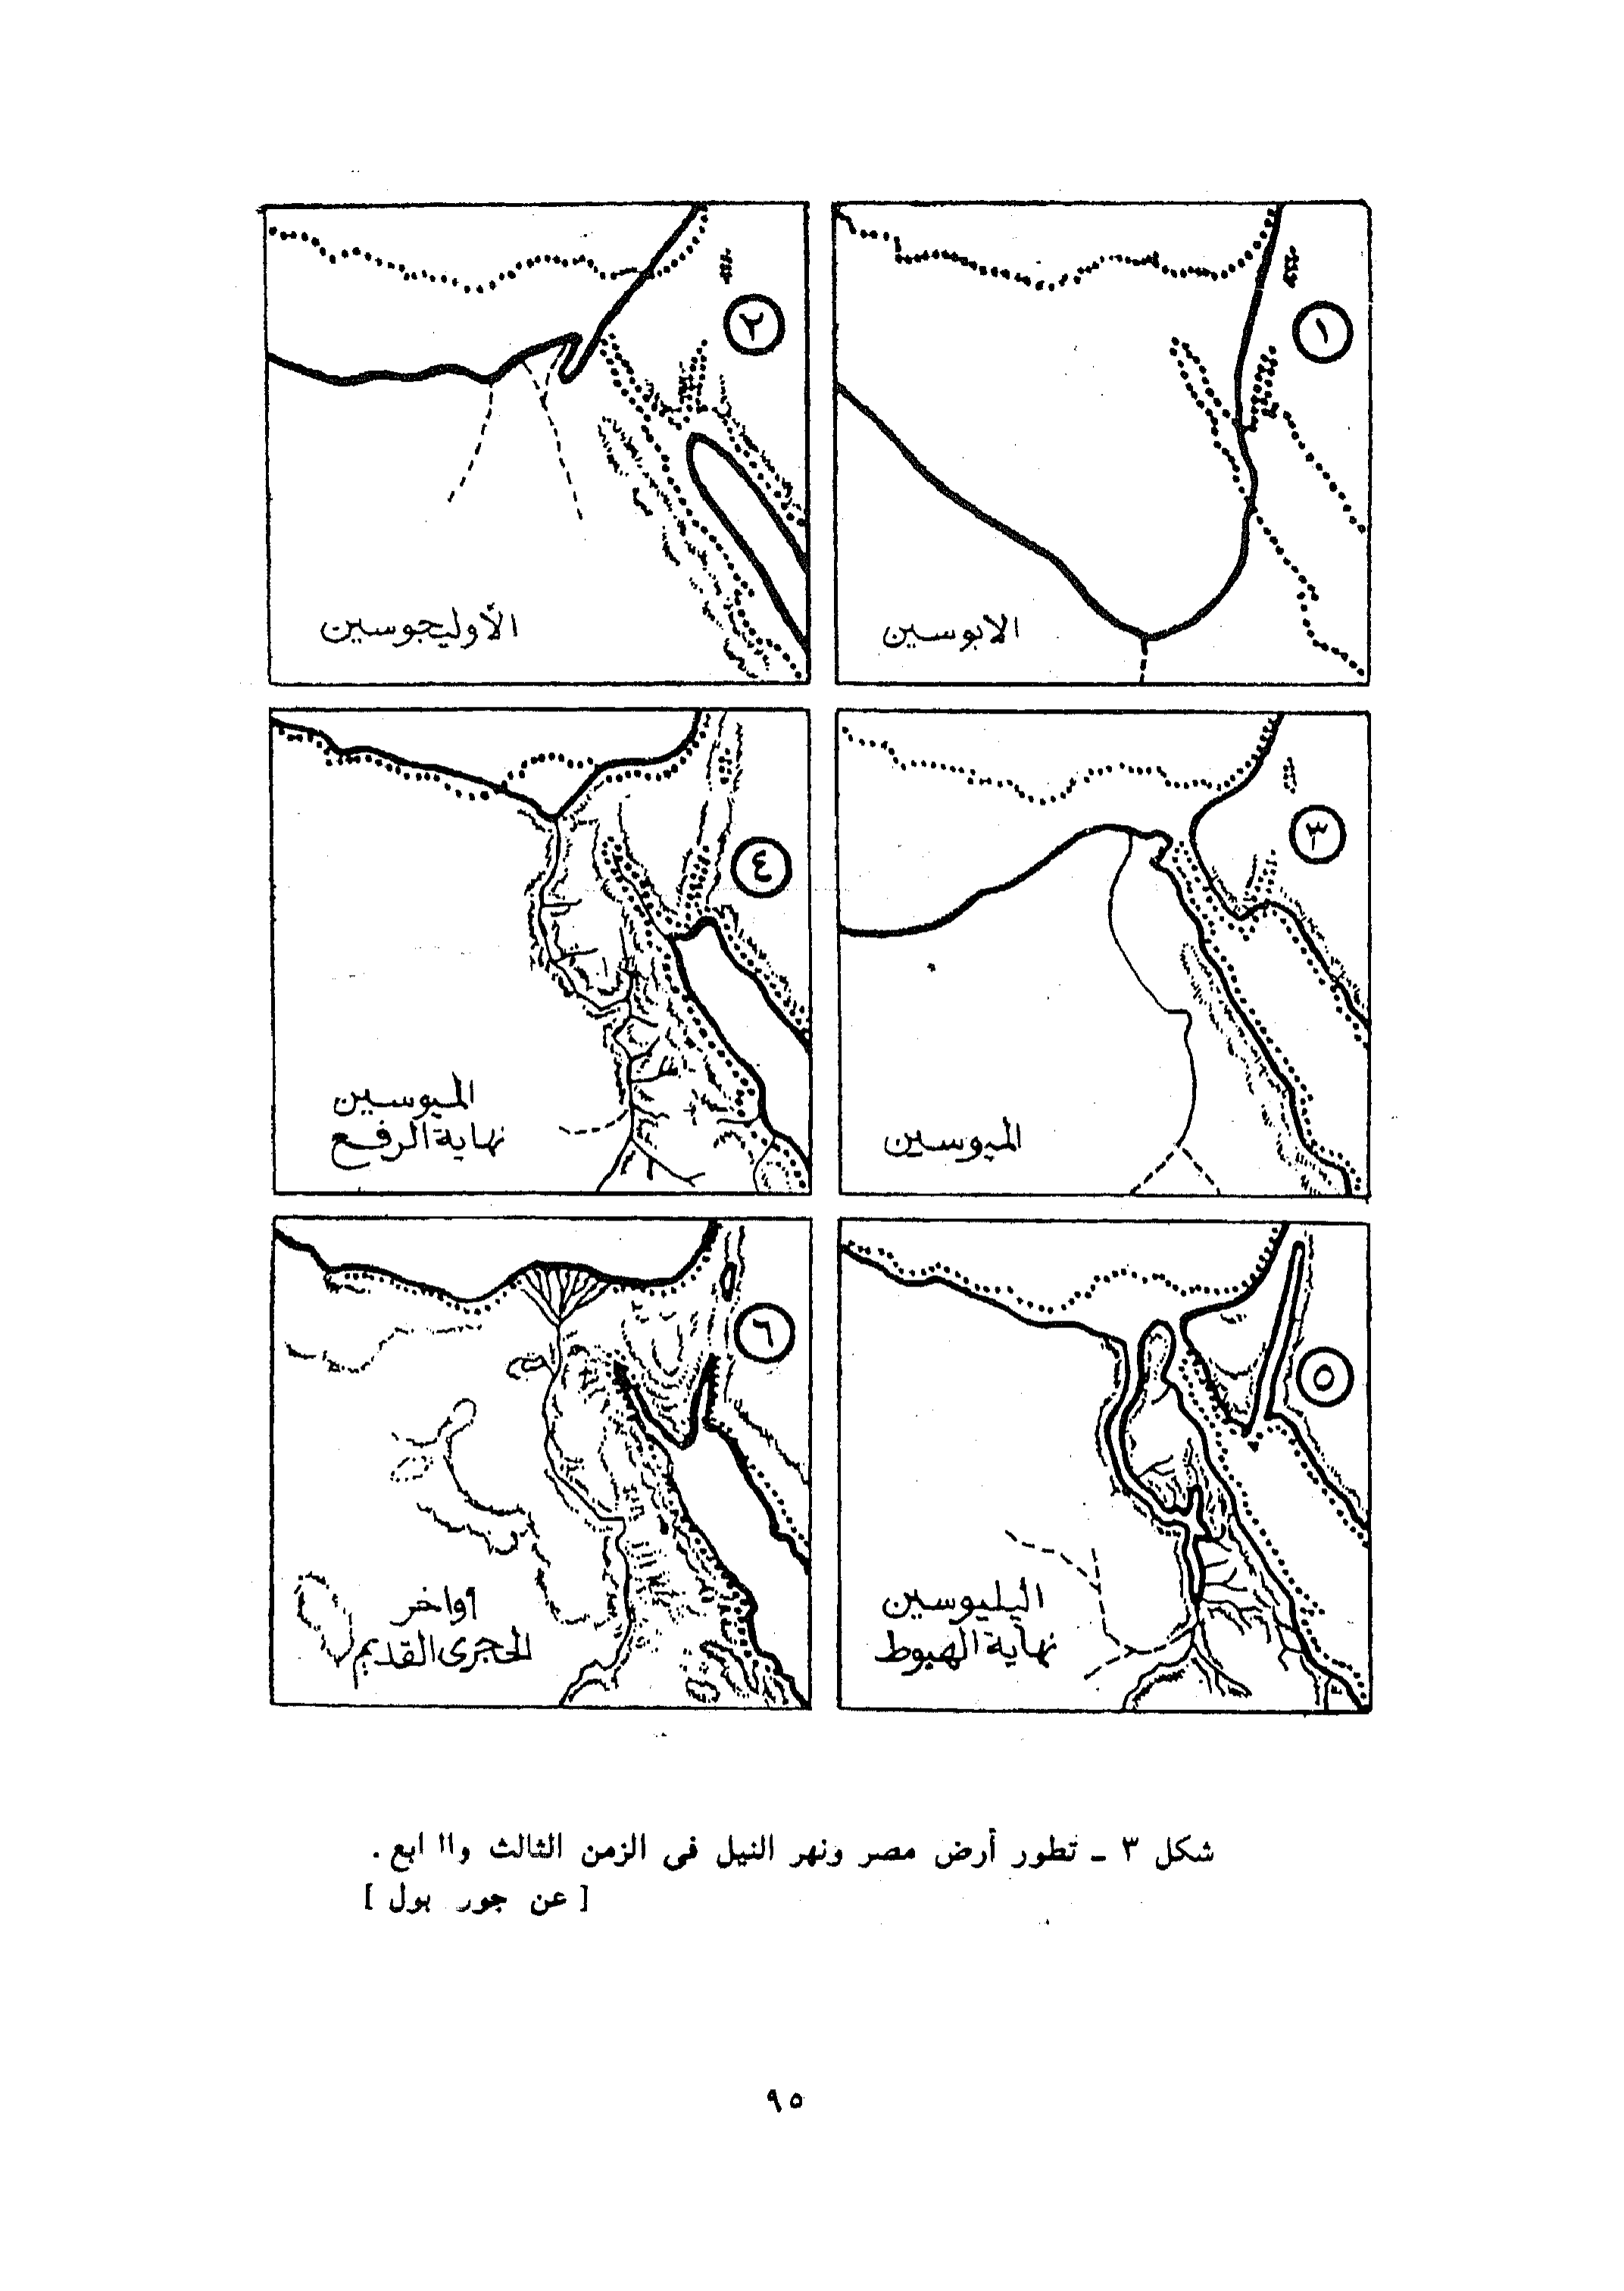 ١
الايوسين
٢
الأوليجوسين
٣
الميوسين
٤
الميوسين
نهاية الرفع
٥
البليوسين
نهاية الهبوط
٦
أواخر
الحجرى القديم
شكل ٣ ـ تطور أرض مصر ونهر النيل فى الزمن الثالث
[ عن جور بول ]
٩٥